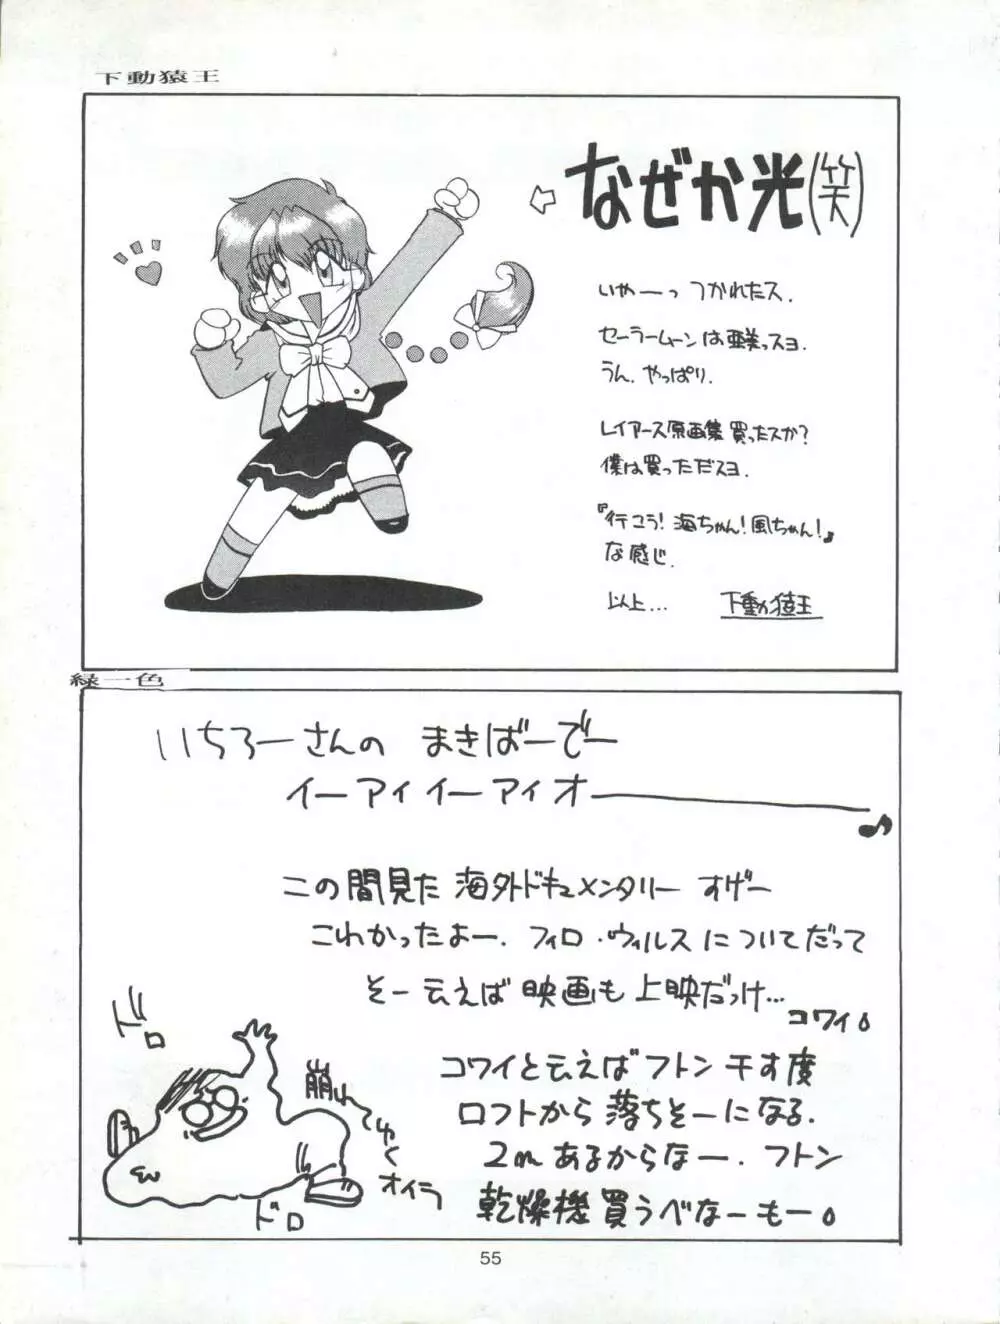 下動猿王
なぜか光(笑)
いやーっ つかれたス.
セーラームーンは亜美っスヨ.
うん. やっぱり.
レイアース原画集買ったスか?
僕は買っただスヨ.
『行こう! 海ちゃん! 風ちゃん!』♪
な感じ.
以上... 下動猿王
緑一色
いちろーさんの まきばーでー
イーアイイーアイオ――♪
この間見た 海外ドキュメンタリー すげー
こわかったよー. フィロ・ウィルスについてだって
そー云えば 映画も 上映だっけ...
コワイ。
コワイと云えば フトン 干す度
ロフトから 落ちそーになる.
2mあるからなー. フトン
乾燥機 買うべなーもー。
ドロ
崩れてゆく
オイラ
ドロ
55